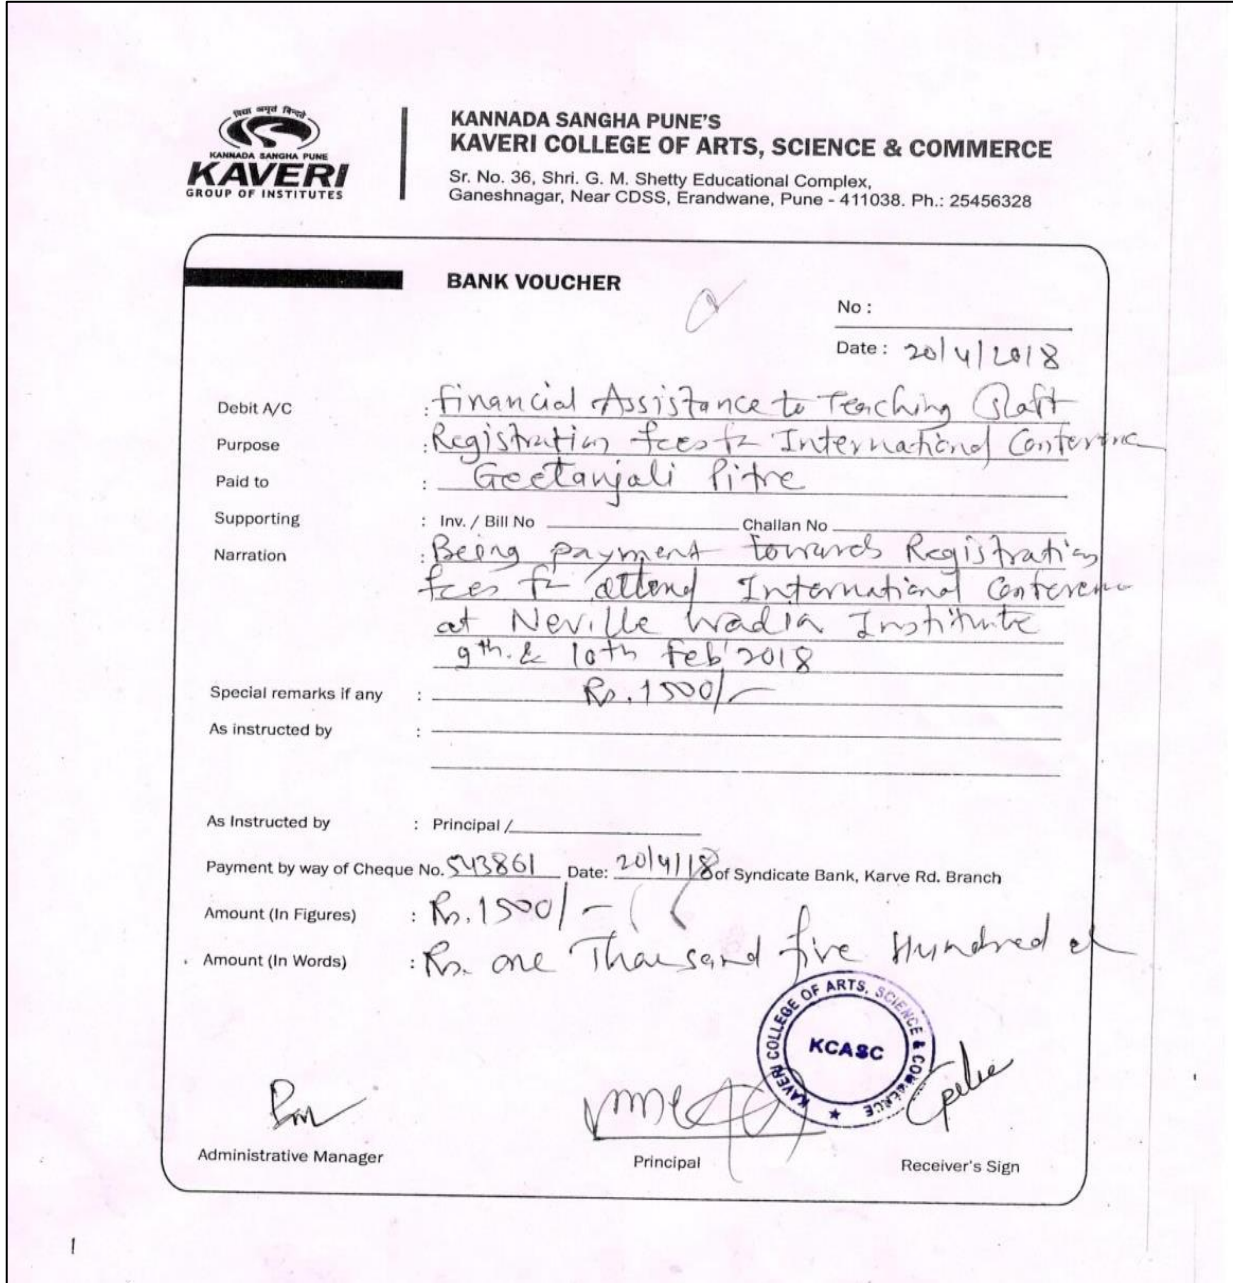 विद्या अमृतं विन्दते
KANNADA SANGHA PUNE
KAVERI
GROUP OF INSTITUTES
KANNADA SANGHA PUNE'S
KAVERI COLLEGE OF ARTS, SCIENCE & COMMERCE
Sr. No. 36, Shri. G. M. Shetty Educational Complex,
Ganeshnagar, Near CDSS, Erandwane, Pune - 411038. Ph.: 25456328
BANK VOUCHER
No :
Date : 20/4/2018
Debit A/C : financial Assistance to Teaching Staff
Purpose : Registration fees for International Conference
Paid to : Geetanjali Pitre
Supporting : Inv. / Bill No Challan No
Narration : Being payment towards Registration
fees for attend International Conference
at Neville Wadia Institute
9th. & 10th Feb'2018
Special remarks if any : Rs.1500/-
As instructed by :
As Instructed by : Principal /
Payment by way of Cheque No. 543861 Date: 20/4/18 of Syndicate Bank, Karve Rd. Branch
Amount (In Figures) : Rs.1500/-
Amount (In Words) : Rs. one Thousand five Hundred
KAVERI COLLEGE OF ARTS, SCIENCE & COMMERCE
KCASC
Administrative Manager
Principal
Receiver's Sign